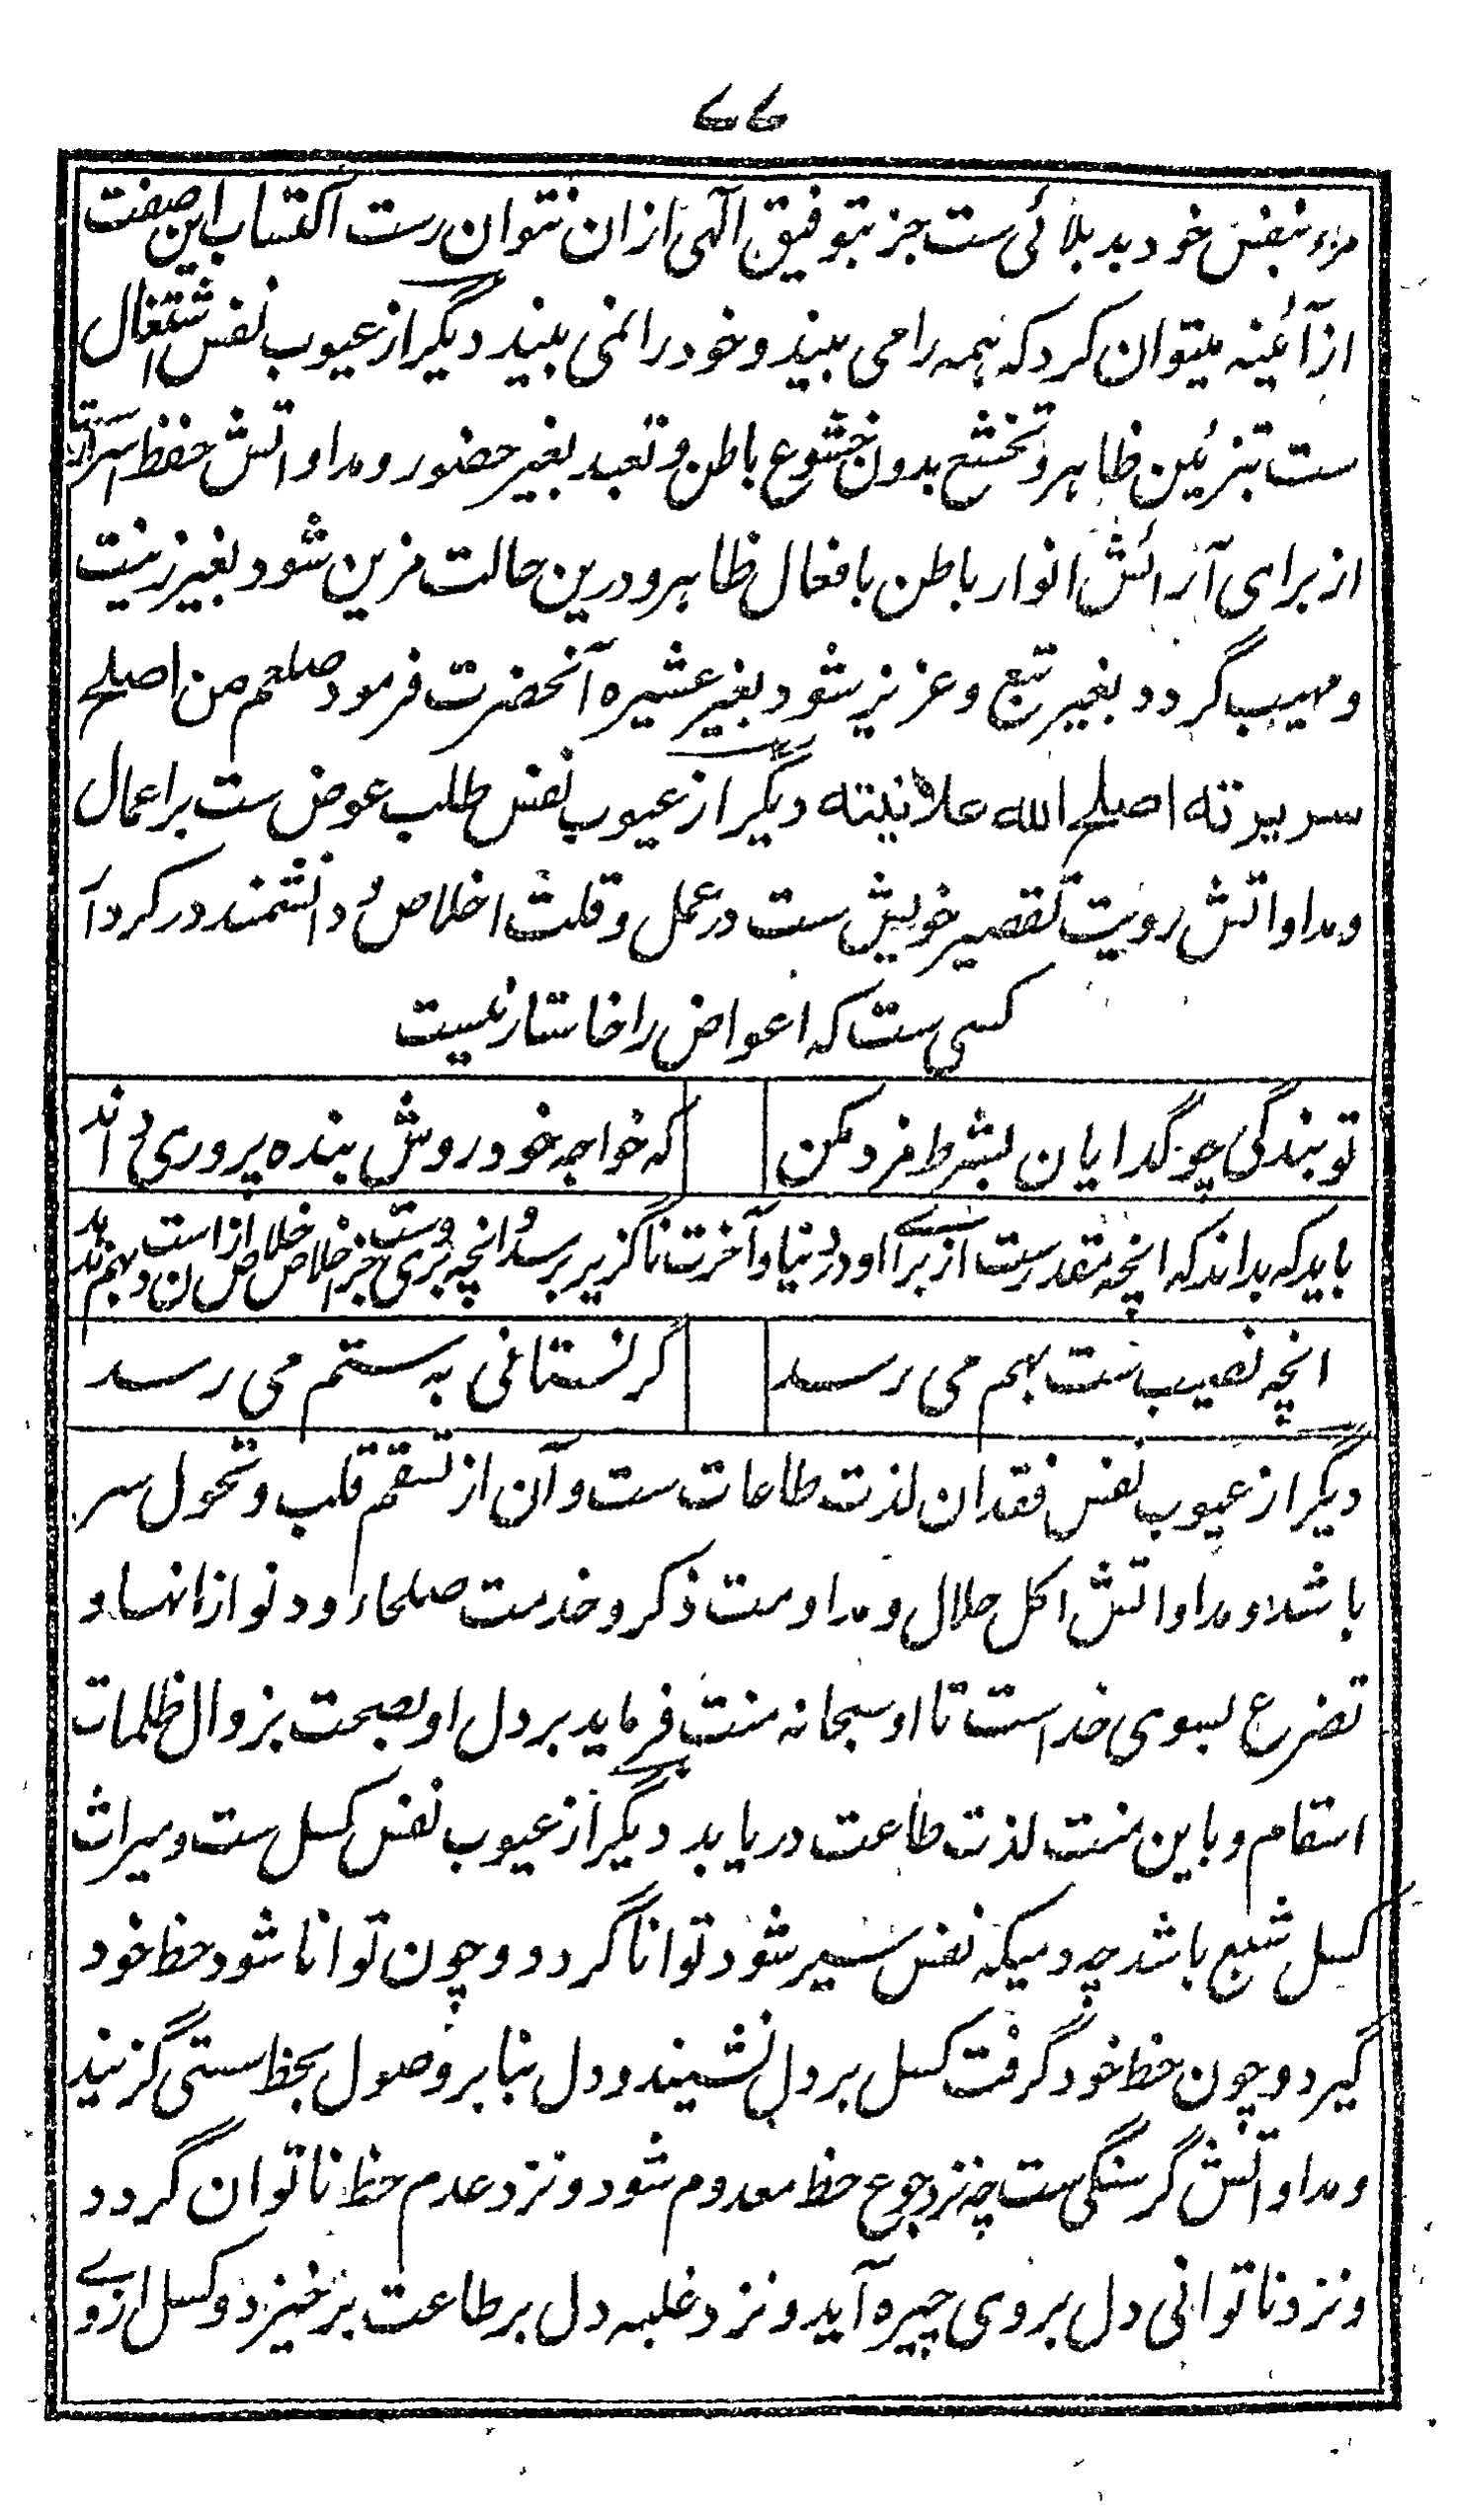 ۷۷
مرء بنفس خود بد بلائی ست جز بتوفیق الهی ازان نتوان رست اکتساب این صفت
از آئینه میتوان کرد که همه را می بیند و خود را نمی بیند دیگر از عیوب نفس اشتغال
ست بتزئین ظاهر و تخشع بدون خشوع باطن و تعبد بغیر حضور و مداواتش حفظ اسرار
از برای آرائش انوار باطن بافعال ظاهر و درین حالت مزین شود بغیر زینت
و مهیب گردد بغیر تبع و عزیز شود بغیر عشیره آنحضرت فرمود صلعم من اصلح
سریرته اصلح الله علانیته دیگر از عیوب نفس طلب عوض ست بر اعمال
و مداواتش رویت تقصیر خویش ست در عمل و قلت اخلاص و دانشمند در کردار
کسی ست که اعواض را خاستار نیست
تو بندگی چو گدایان بشرط مزد مکن
که خواجه خود روش بنده پروری داند
باید که بداند که انچه مقدرست از برای او در دنیا و آخرت ناگزیر برسد و انچه بروست جز اخلاص
انچه نصیب ست بهم می رسد
گر نستانی به ستم می رسد
دیگر از عیوب نفس فقدان لذت طاعات ست و آن از تسقم قلب و تحول سر
باشد و مداواتش اکل حلال و مداومت ذکر و خدمت صلحاء و دنو ازانها و
تضرع بسوی خداست تا او سبحانه منت فرماید بر دل او بصحت بزوال ظلمات
اسقام و باین منت لذت طاعت دریابد دیگر از عیوب نفس کسل ست و میراث
کسل شبع باشد چه دمیکه نفس سیر شود توانا گردد و چون توانا شود حظ خود
گیرد و چون حظ خود گرفت کسل بر دل نشیند و دل بنابر وصول بحظ سستی گزیند
و مداواتش گرسنگی ست چه نزد جوع حظ معدوم شود و نزد عدم حظ ناتوان گردد
و نزد ناتوانی دل بروی چیره آید و نزد غلبه دل بر طاعت برخیزد و کسل ازوے